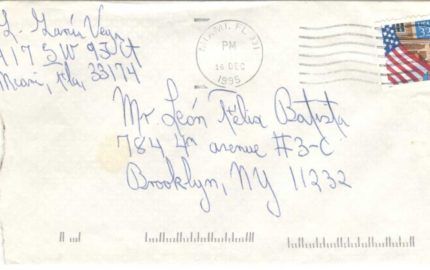 L. García Vega
A17 SW 93 Ct
Miami, Fla, 33174
MIAMI, FL 331
PM
16 DEC
1995
Mr León Félix Batista
784 4th avenue #3-C
Brooklyn, NY 11232